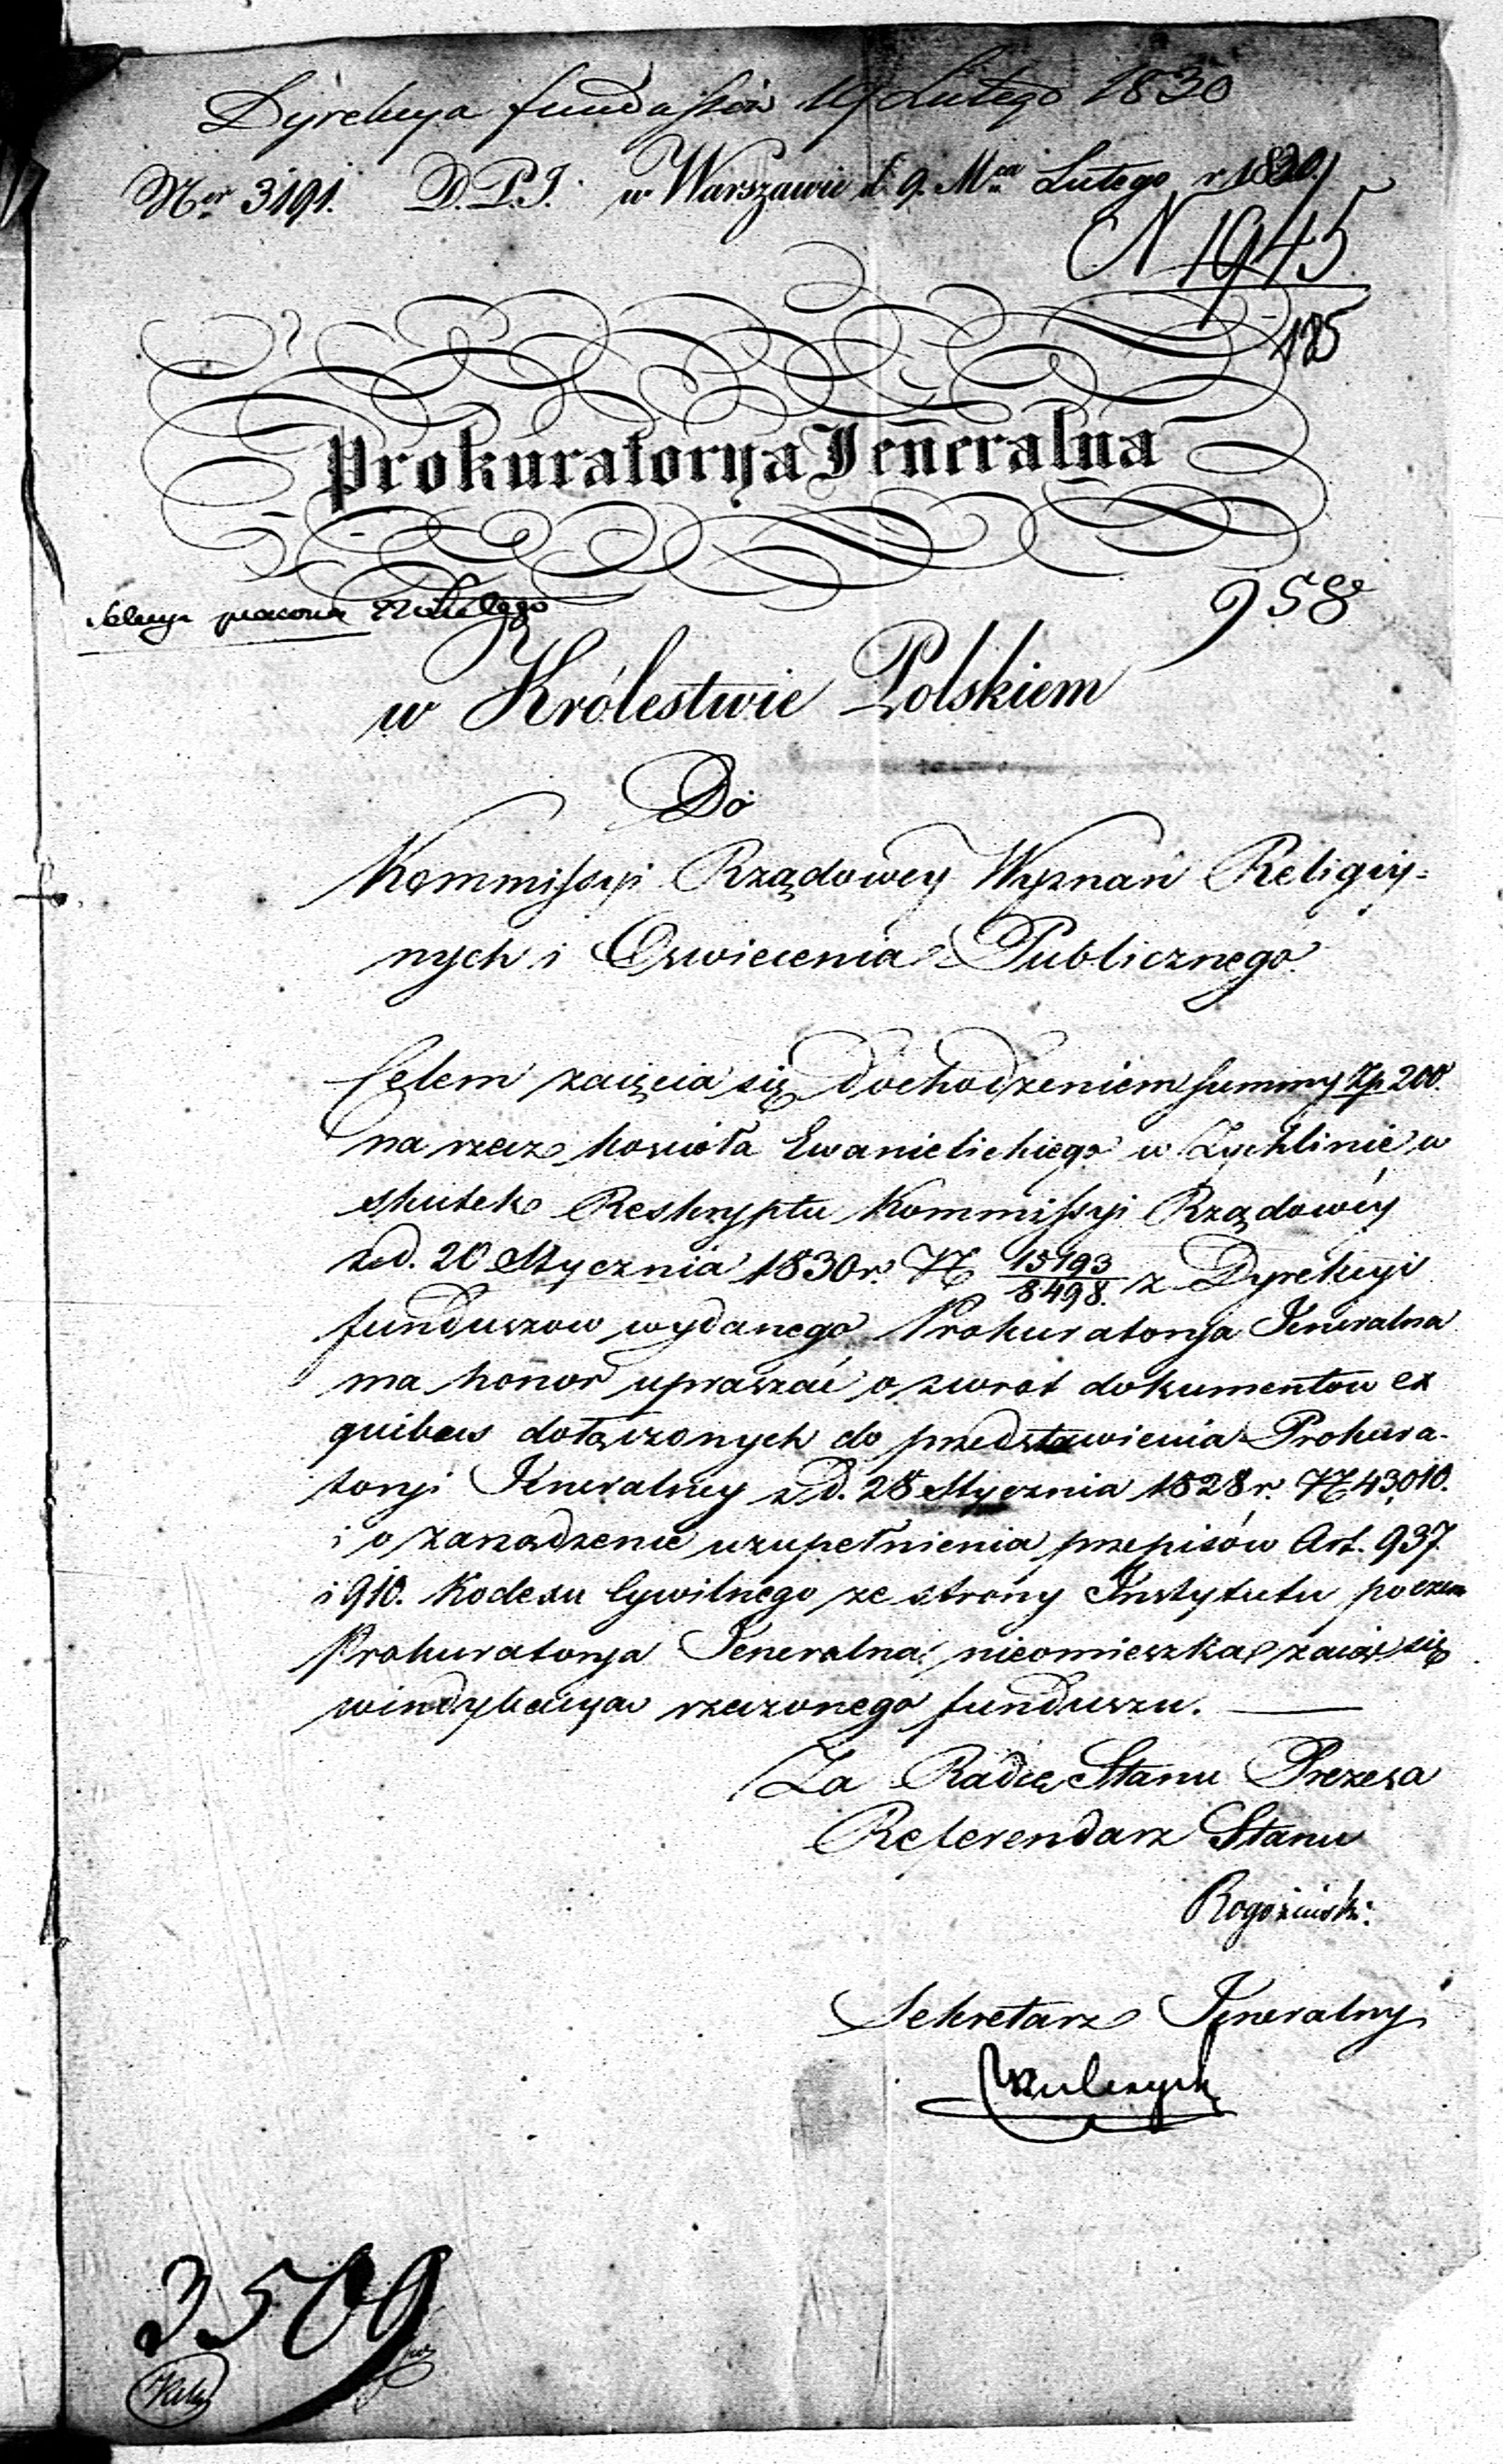 Dyrekcya funduszów 19 Lutego 1830
Ner 3191. D.P.J. w Warszawie d. 9. Mca Lutego r 1830
N 1945
125
Prokuratorya Jeneralna
22 Lutego
958
w Królestwie Polskiem
Do
Kommissyi Rządowey Wyznań Religiy-
nych i Oswiecenia Publicznego
Celem zaięcia się dochodzeniem summy Zp 200.
na rzecz kościoła Ewanielickiego w Zychlinie w
skutek Reskryptu Kommissyi Rządowéy
z d. 20 Stycznia 1830 r. N 15193/8498. z Dyrekcyi
funduszow wydanego Prokuratorya Jeneralna
ma honor upraszać o zwrot dokumentow ex
quibus dołączonych do przedstawienia Prokura-
toryi Jeneralney z d. 28 Stycznia 1828 r. N 43,010.
i o zarządzenie uzupełnienia przepisów Art. 937
i 910. Kodexu Cywilnego ze strony Instytutu poczem
Prokuratorya Jeneralna nieomieszka zaiąć się
windykacya rzeczonego funduszu.
Za Radcę Stanu Prezesa
Referendarz Stanu
Rogoziński.
Sekretarz Jeneralny
3509